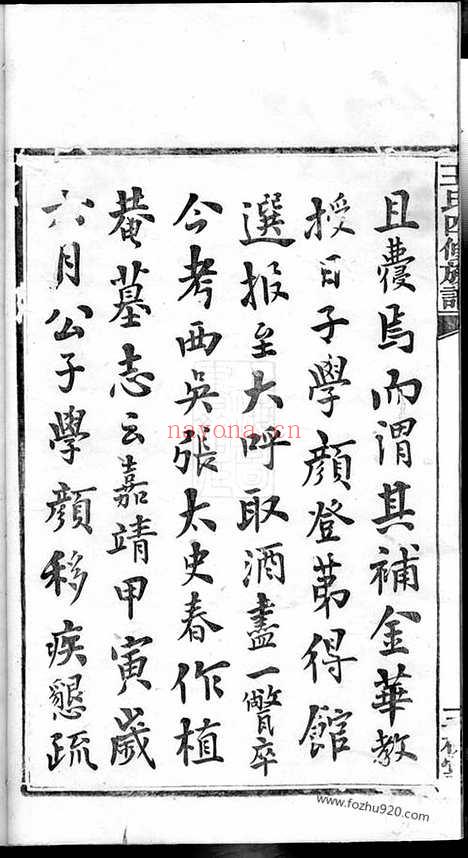 且費焉而謂其補金華教
授日子學顔登第得館
選报至大呼取酒盡一甞卒
今考西吳張太史春作植
菴墓志云嘉靖甲寅歲
六月公子學顔移疾懇疏
王氏四修族譜
nayona.cn
www.fozhu920.com